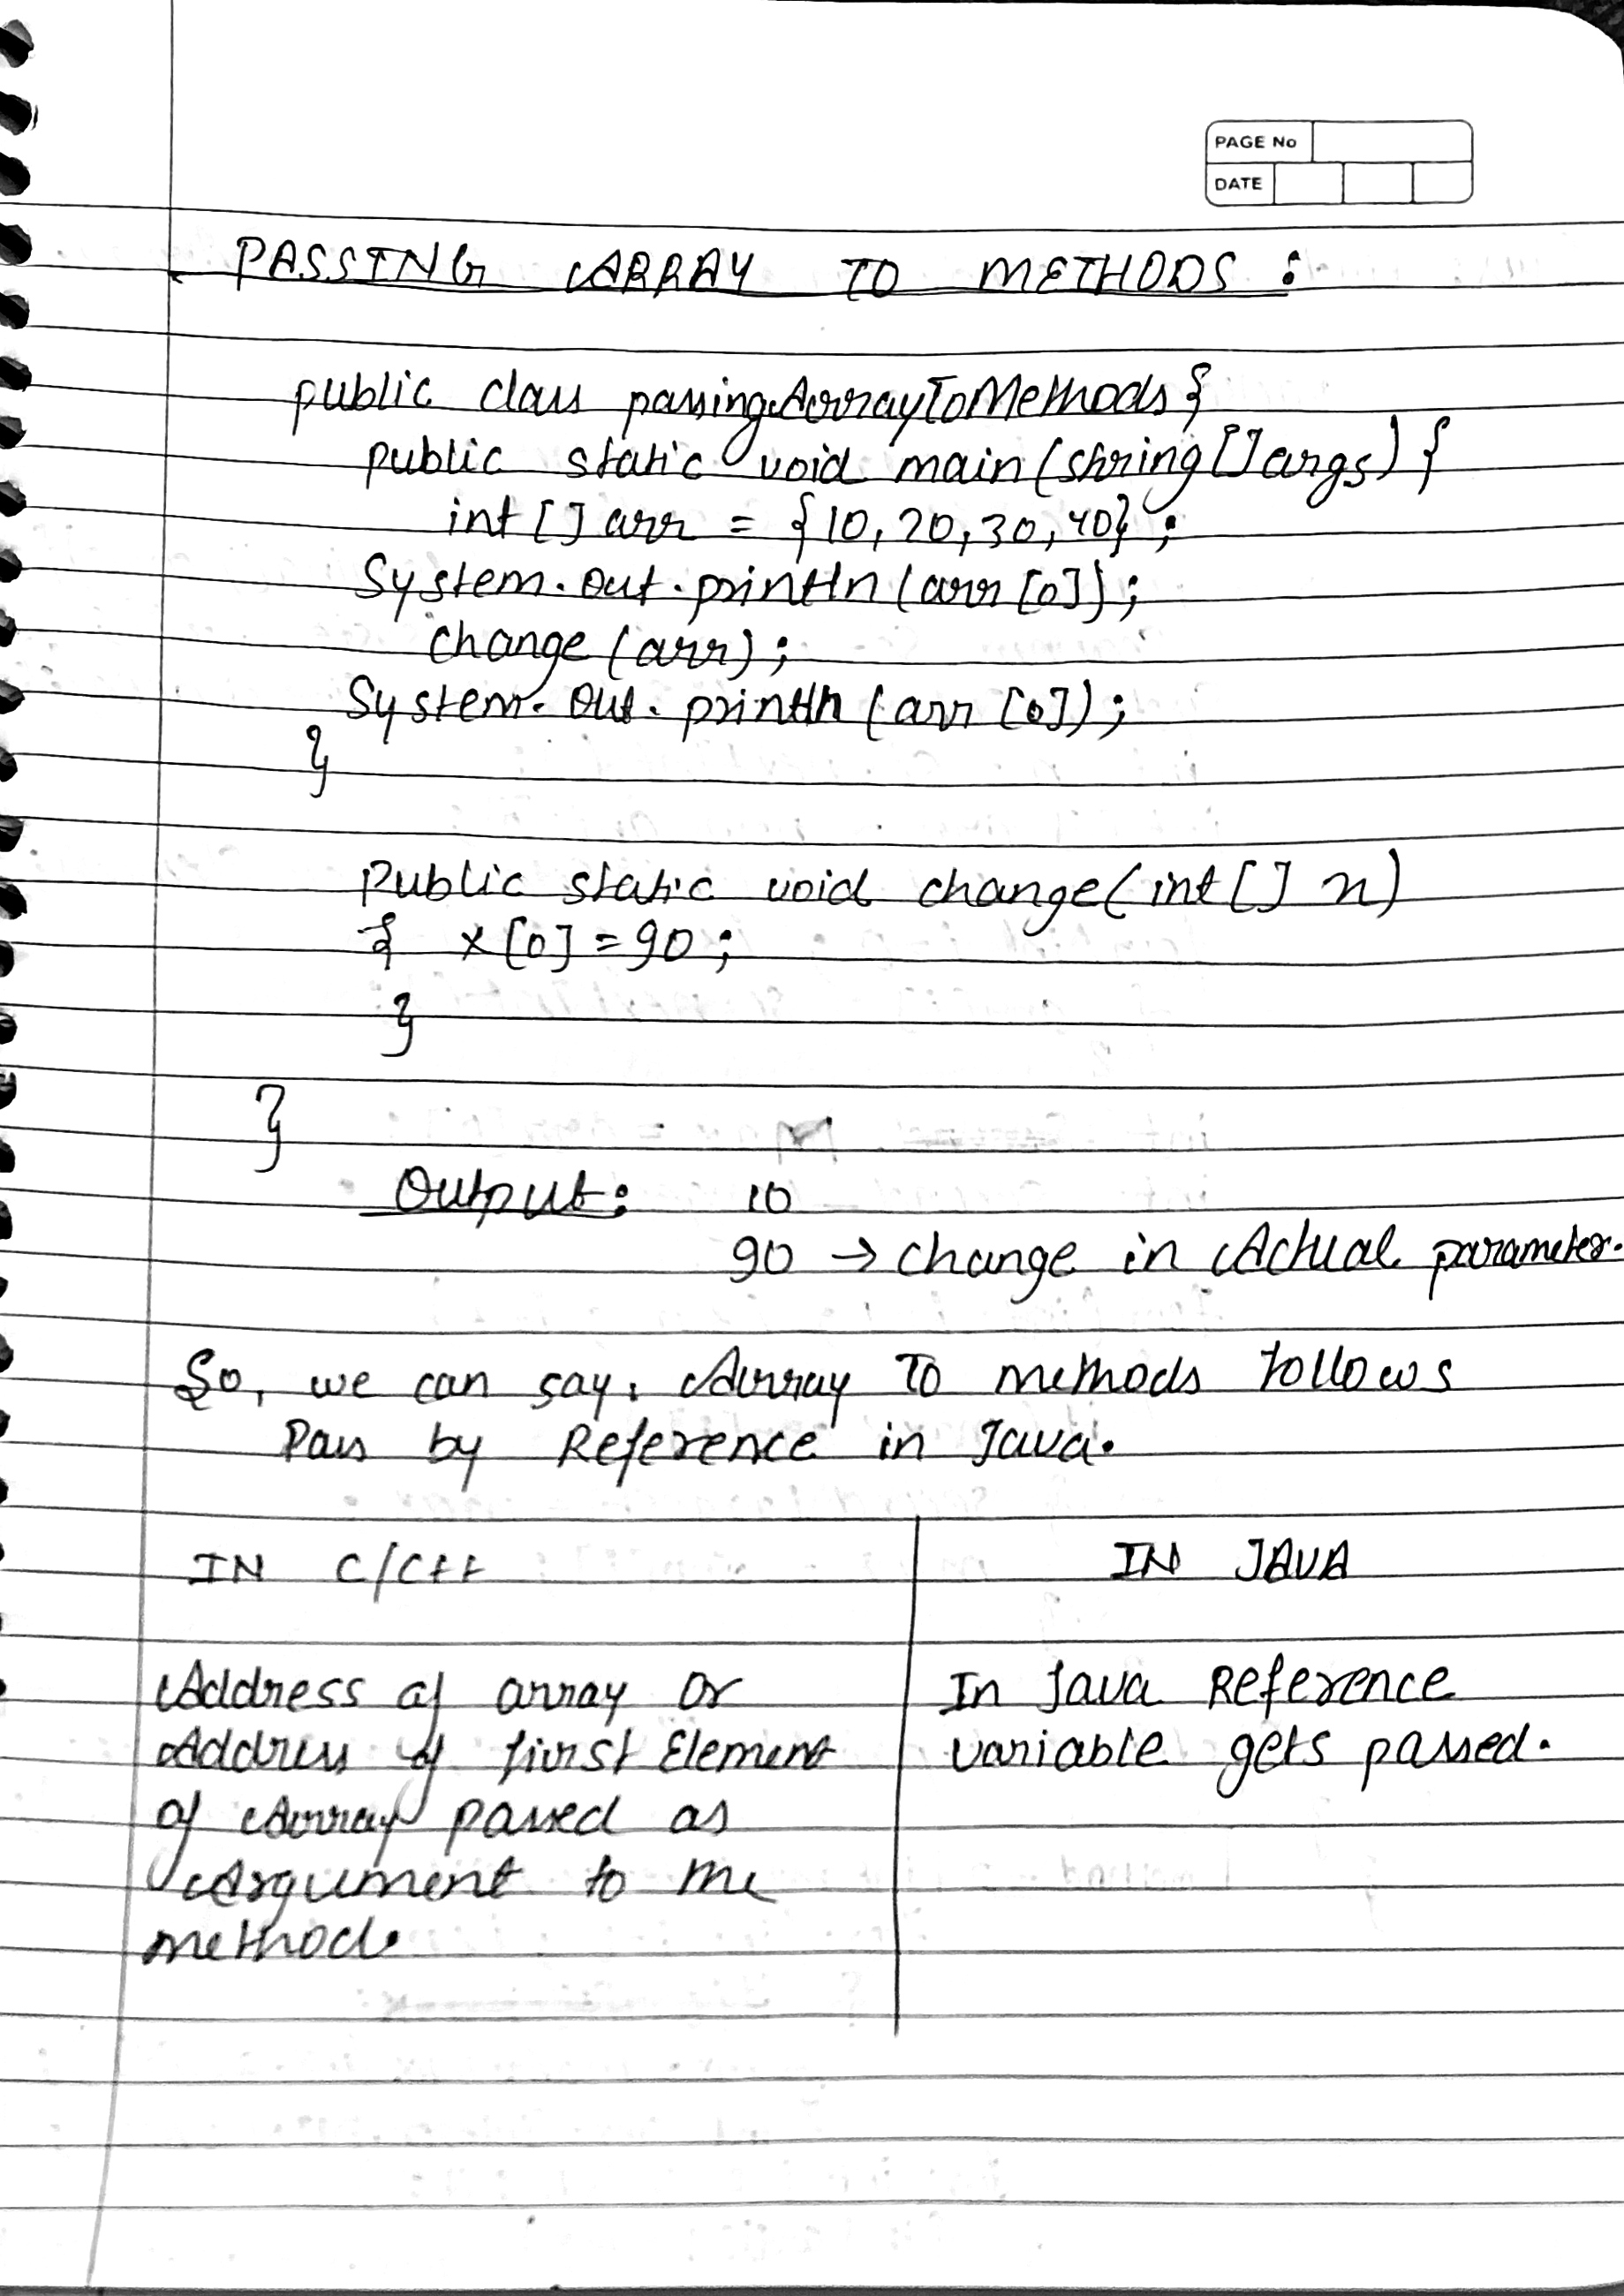 PAGE No
DATE
PASSING ARRAY TO METHODS :
public class passingArrayToMethods {
public static void main (string [] args) {
int [] arr = {10, 20, 30, 40} ;
System. out. println (arr [0]);
change (arr) ;
System. Out. println (arr [0]) ;
}
Public static void change (int [] x)
{ x [0] = 90 ;
}
}
Output : 10
90 → change in Actual parameter.
So, we can say, Array To methods follows
Pass by Reference in Java.
IN C/C++
IN JAVA
Address of array or
Address of first Element
of Array passed as
Argument to the
method.
In Java Reference
variable gets passed.